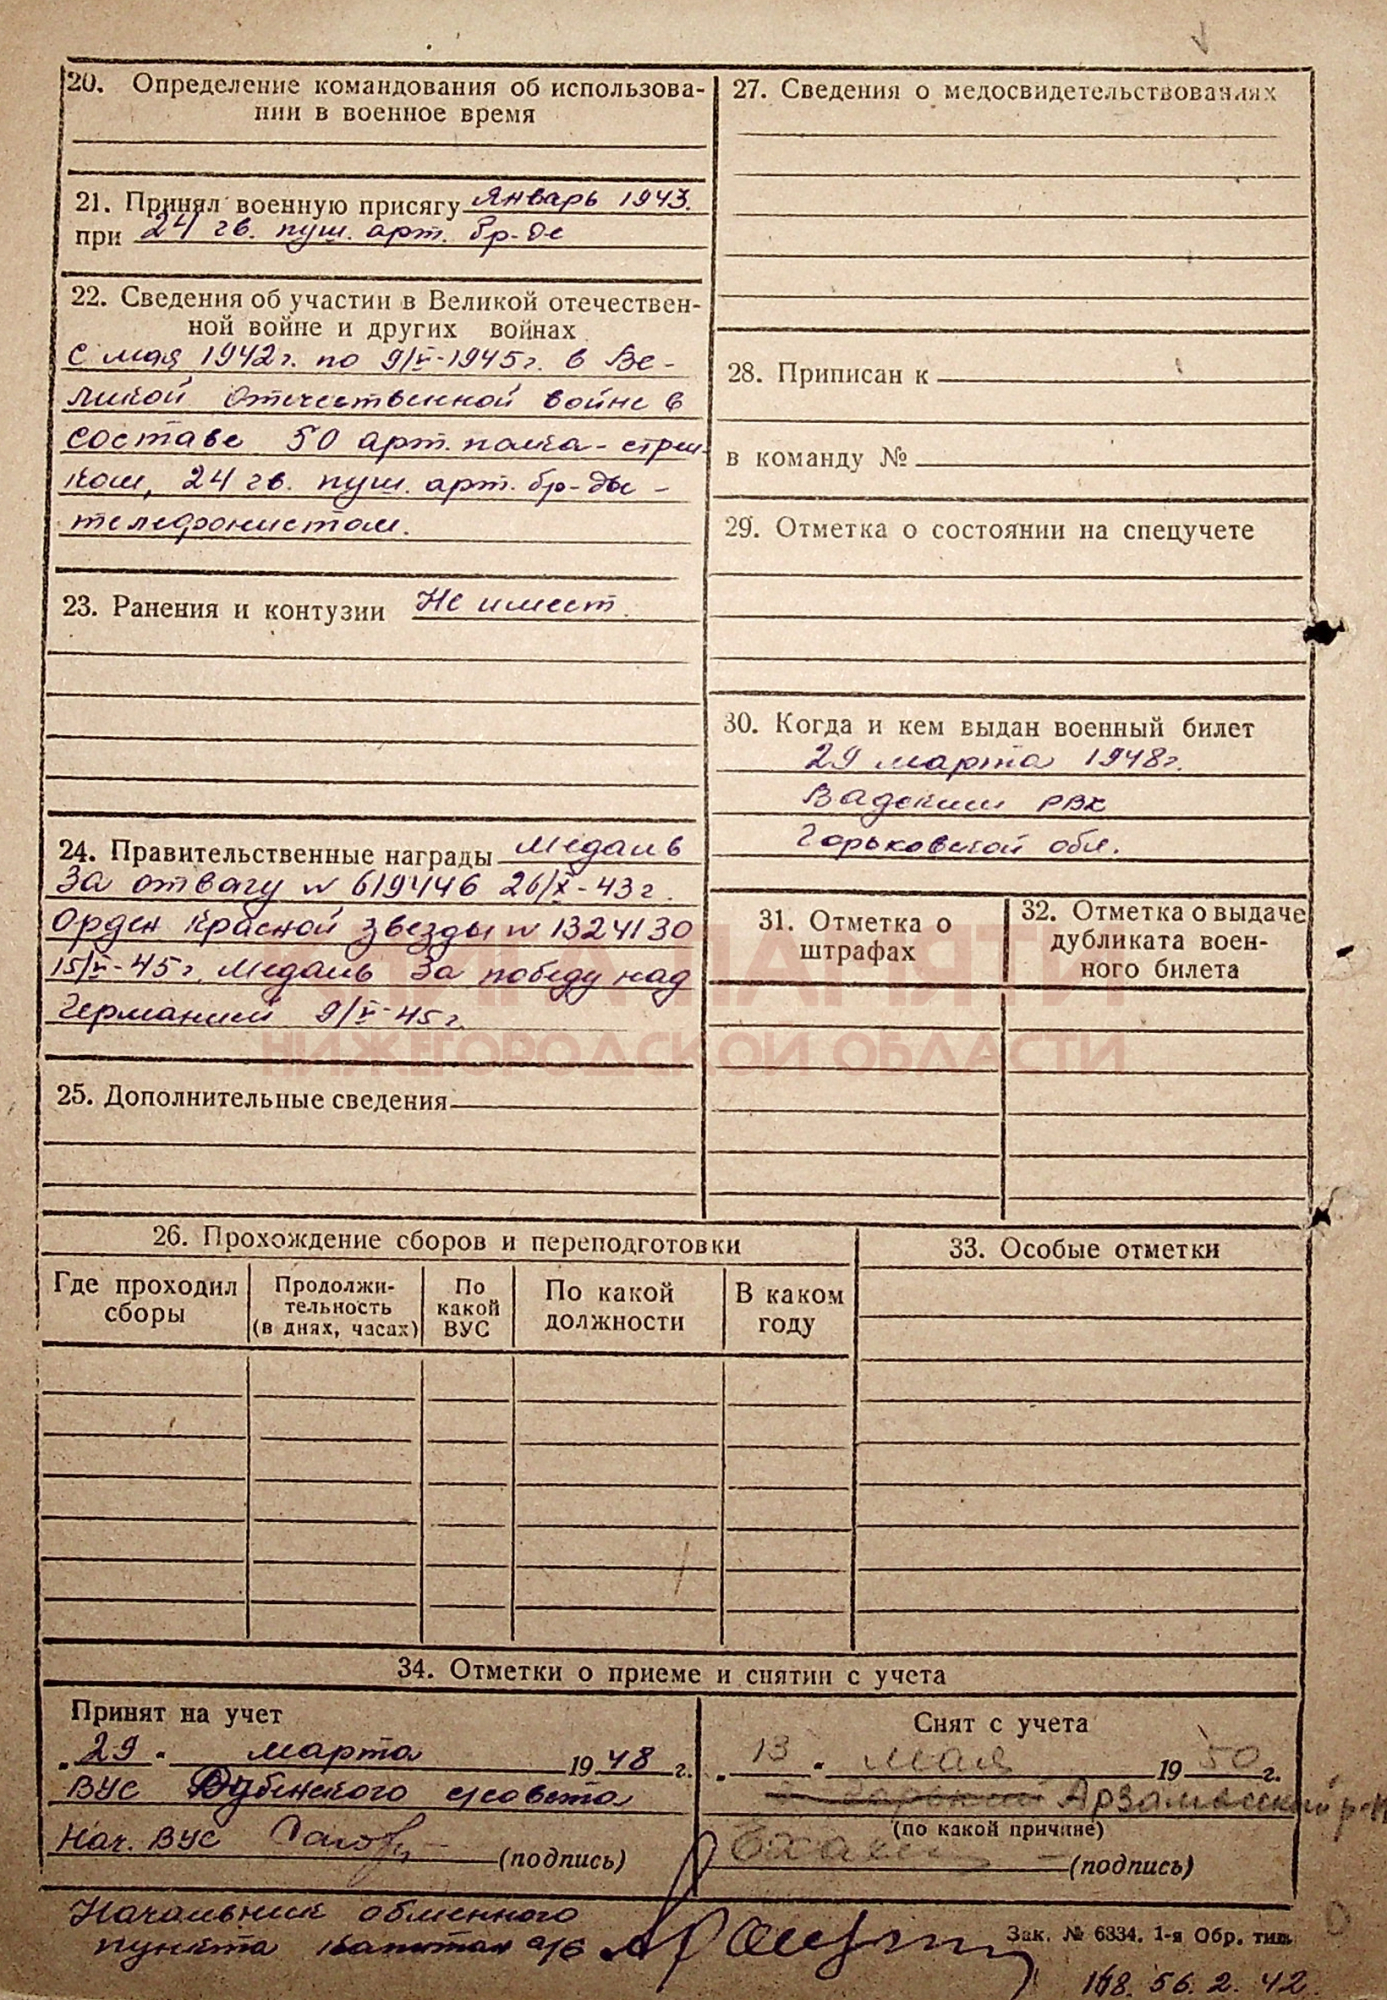 20. Определение командования об использова-
нии в военное время
21. Принял военную присягу Январь 1943.
при 24 гв. пуш. арт. бр-де
22. Сведения об участии в Великой отечествен-
ной войне и других войнах
С мая 1942г. по 9/V-1945г. в Ве-
ликой Отечественной войне в
составе 50 арт. полка - стрел-
ком, 24 гв. пуш. арт. бр-ды -
телефонистом.
23. Ранения и контузии Не имеет.
24. Правительственные награды Медаль
За отвагу № 619446 26/X-43г.
Орден Красной звезды № 1324130
15/V-45г. Медаль За победу над
Германией 9/V-45г.
25. Дополнительные сведения
26. Прохождение сборов и переподготовки
Где проходил
сборы
Продолжи-
тельность
(в днях, часах)
По
какой
ВУС
По какой
должности
В каком
году
27. Сведения о медосвидетельствованиях
28. Приписан к
в команду №
29. Отметка о состоянии на спецучете
30. Когда и кем выдан военный билет
29 марта 1948г.
Вадским РВК
Горьковской обл.
31. Отметка о
штрафах
32. Отметка о выдаче
дубликата воен-
ного билета
КНИГА ПАМЯТИ
НИЖЕГОРОДСКОЙ ОБЛАСТИ
33. Особые отметки
34. Отметки о приеме и снятии с учета
Принят на учет
„29" марта 1948г.
ВУС Дубенского с/совета
Нач. ВУС (подпись)
Снят с учета
„13" мая 1950г.
Арзамасский р-н
(по какой причине)
(подпись)
Начальник обменного
пункта капитан а/с
Зак. № 6334. 1-я Обр. тип.
148. 56. 2. 42.